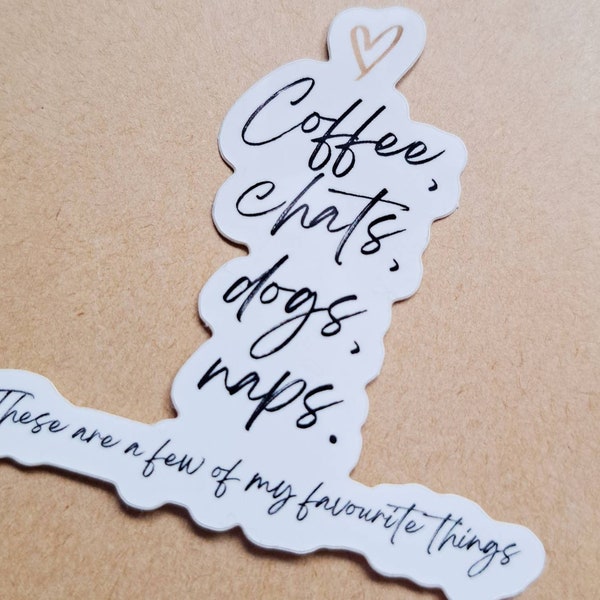 Coffee,
chats,
dogs,
naps.
These are a few of my favourite things